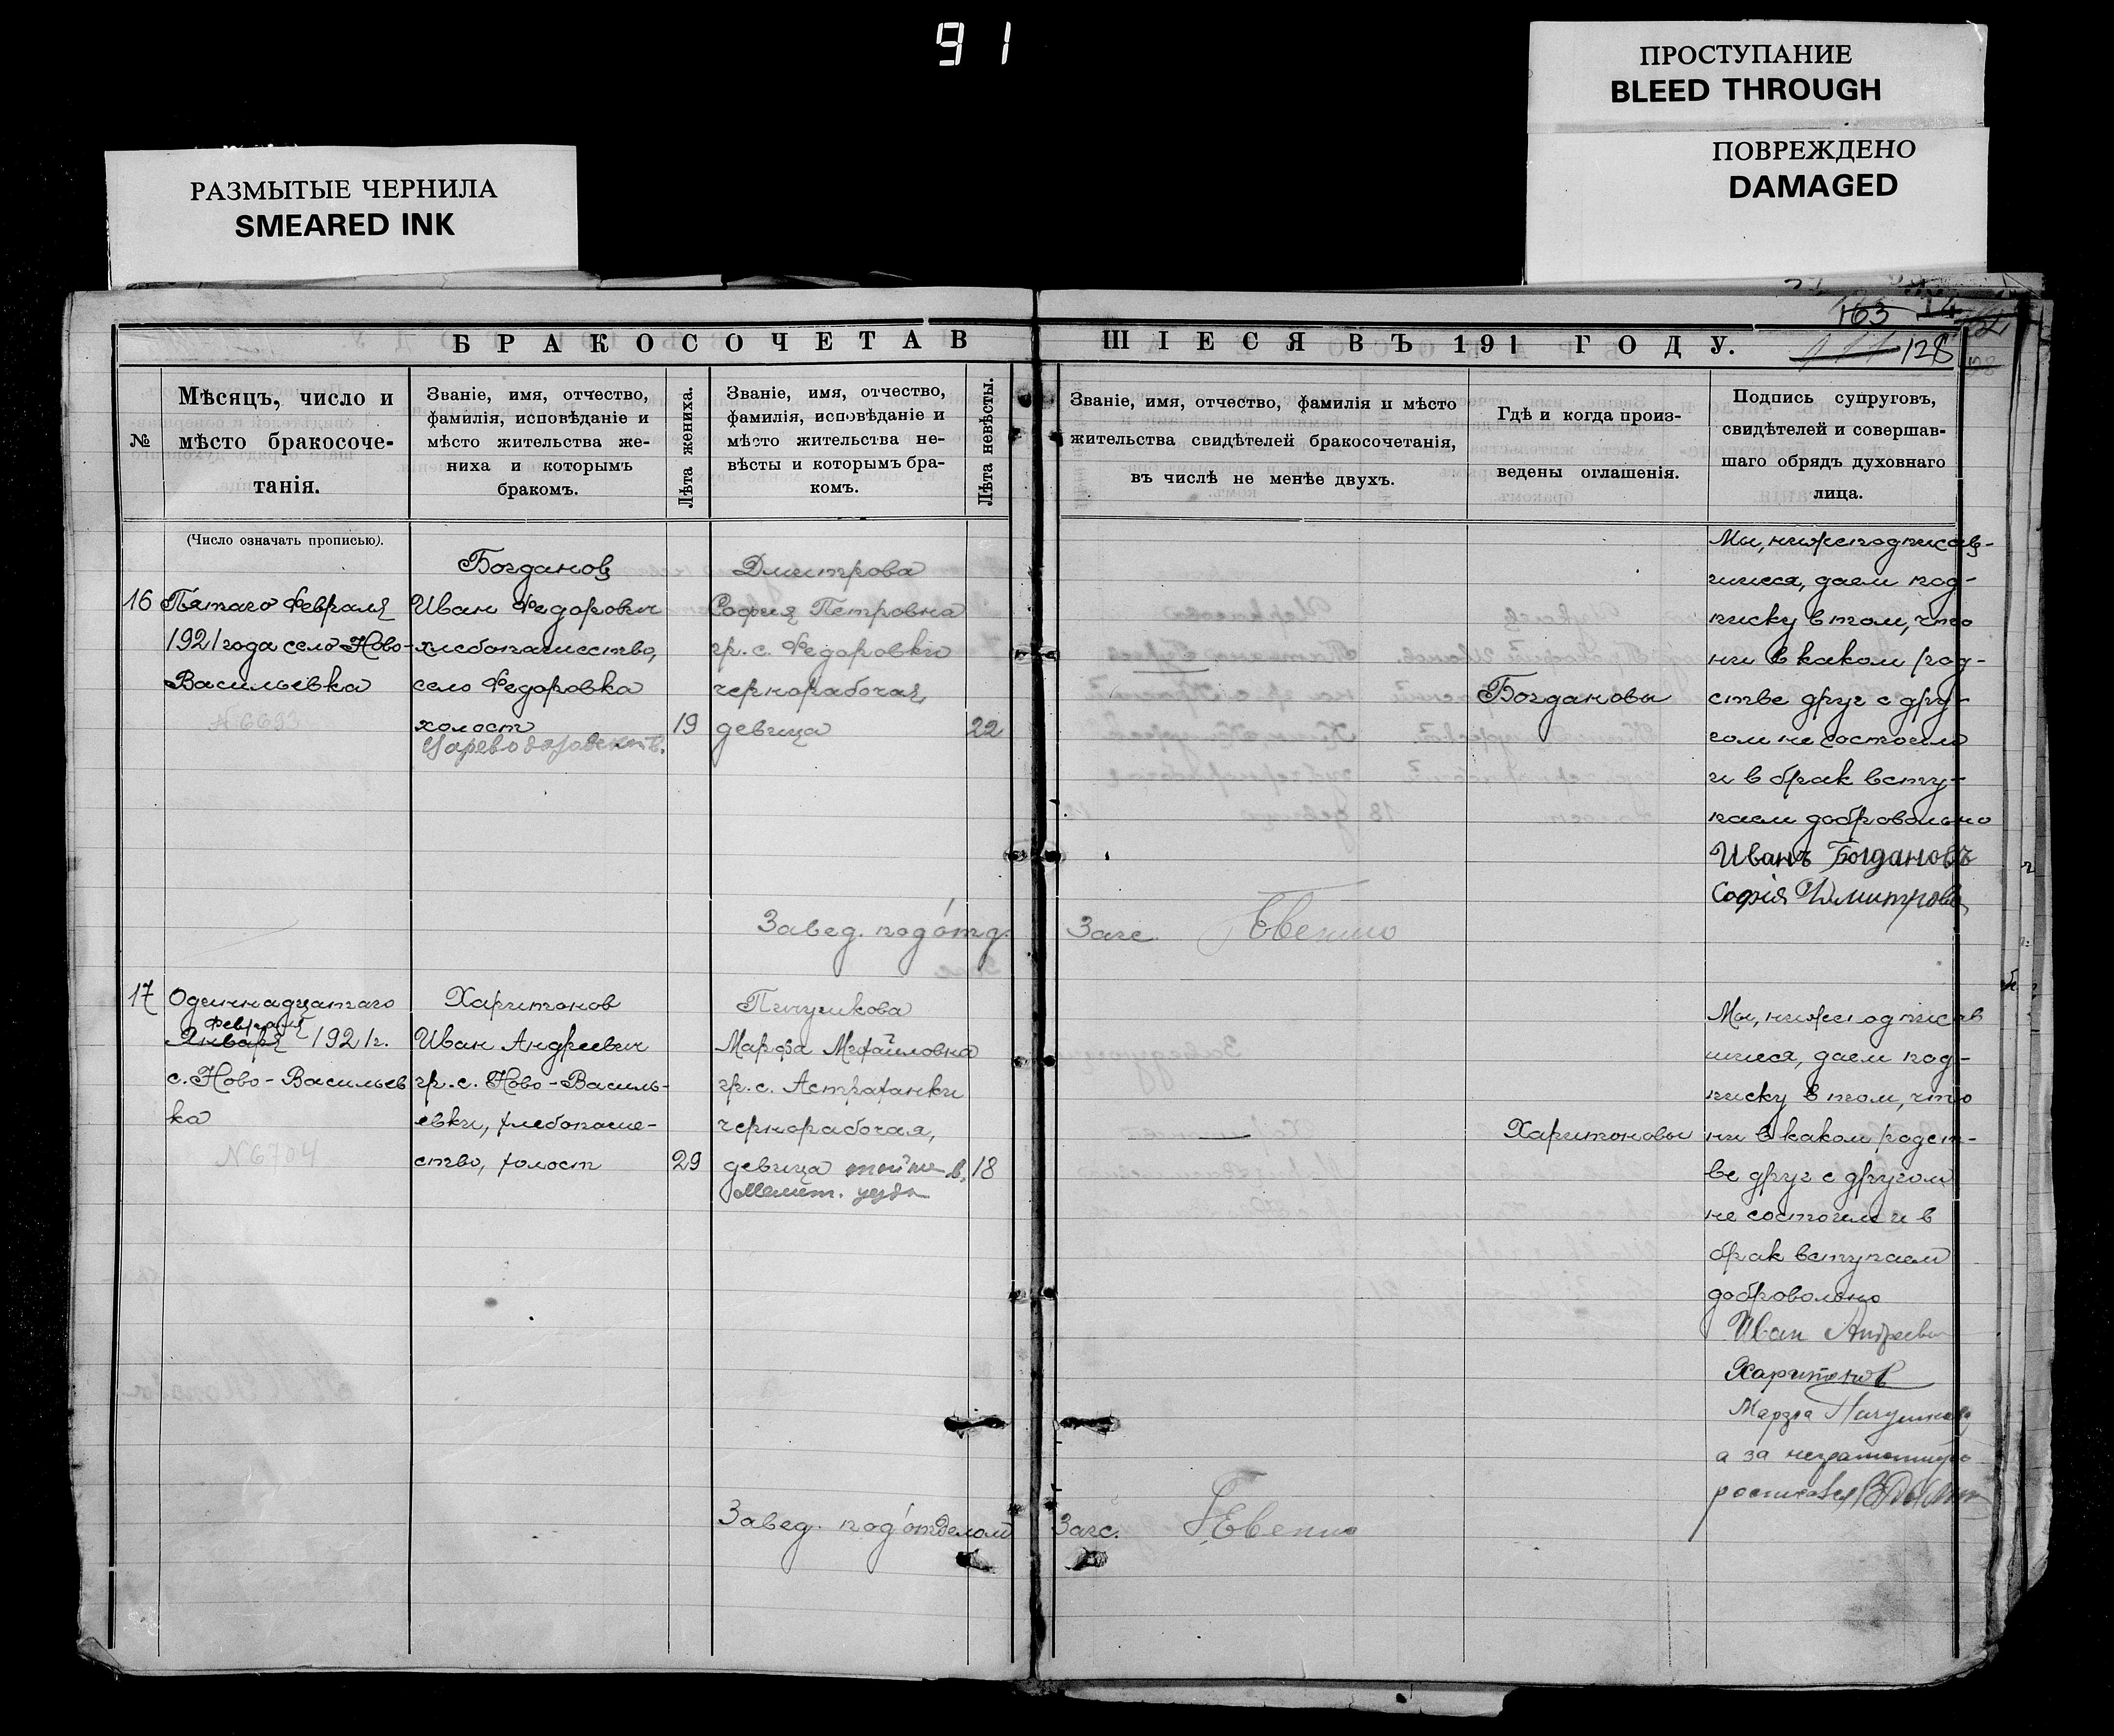 91
ПРОСТУПАНИЕ
BLEED THROUGH
ПОВРЕЖДЕНО
DAMAGED
РАЗМЫТЫЕ ЧЕРНИЛА
SMEARED INK
163 14
128
БРАКОСОЧЕТАВ
ШІЕСЯ ВЪ 191 ГОДУ.
№
Мѣсяцъ, число и
мѣсто бракосоче-
танія.
Званіе, имя, отчество,
фамилія, исповѣданіе и
мѣсто жительства же-
ниха и которымъ
бракомъ.
Лѣта жениха.
Званіе, имя, отчество,
фамилія, исповѣданіе и
мѣсто жительства не-
вѣсты и которымъ бра-
комъ.
Лѣта невѣсты.
Званіе, имя, отчество, фамилія и мѣсто
жительства свидѣтелей бракосочетанія,
въ числѣ не менѣе двухъ.
Гдѣ и когда произ-
ведены оглашенія.
Подпись супруговъ,
свидѣтелей и совершав-
шаго обрядъ духовнаго
лица.
(Число означать прописью).
16
Пятаго Февраля
1921 года село Ново-
Васильевка
N 6693
Богданов
Иван Федорович
хлебопашество,
село Федоровка
холост
19
Дмитрова
София Петровна
гр. с. Федоровки
чернорабочая,
девица
22
Богдановы
Мы, нижеподписав-
шиеся, даем под-
писку в том, что
ни в каком род-
стве друг с дру-
гом не состоим
и в брак всту-
паем добровольно
Иванъ Богдановъ
Софія Дмитрова
Завед. под'отд. Загс.
17
Одиннадцатаго
Февраля
Января 1921 г.
с. Ново-Васильев
ка
N 6704
Харитонов
Иван Андреевич
гр. с. Ново-Василь-
евки, хлебопаше-
ство, холост
29
Пичушкова
Марфа Михайловна
гр. с. Астраханки
чернорабочая,
девица той же в.
Мелит. уезда
18
Харитоновы
Мы, нижеподписав
шиеся, даем под-
писку в том, что
ни в каком родст-
ве друг с другом
не состоим и в
брак вступаем
добровольно
Иван Андреевич
Харитонов
Марфа Пичушкова
а за неграмотную
росписався
Завед. под'отделом Загс.